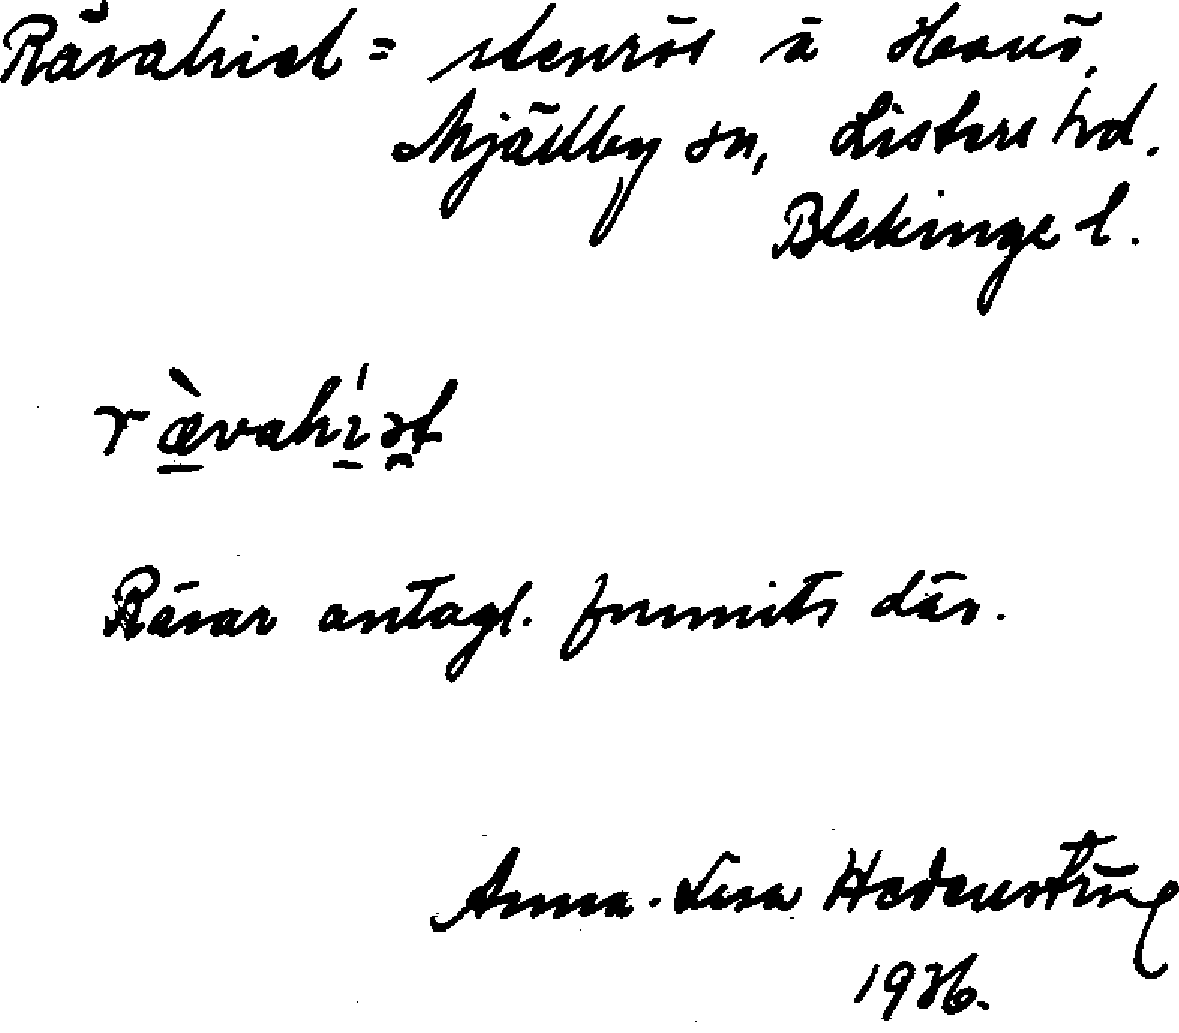 Rävahiet = stenrös å Hanö,
Mjällby sn, Listers hd.
Blekinge l.
r æ̀vahi̍ət
Rävar antagl. funnits där.
Anna-Lisa Hedenström
1936.